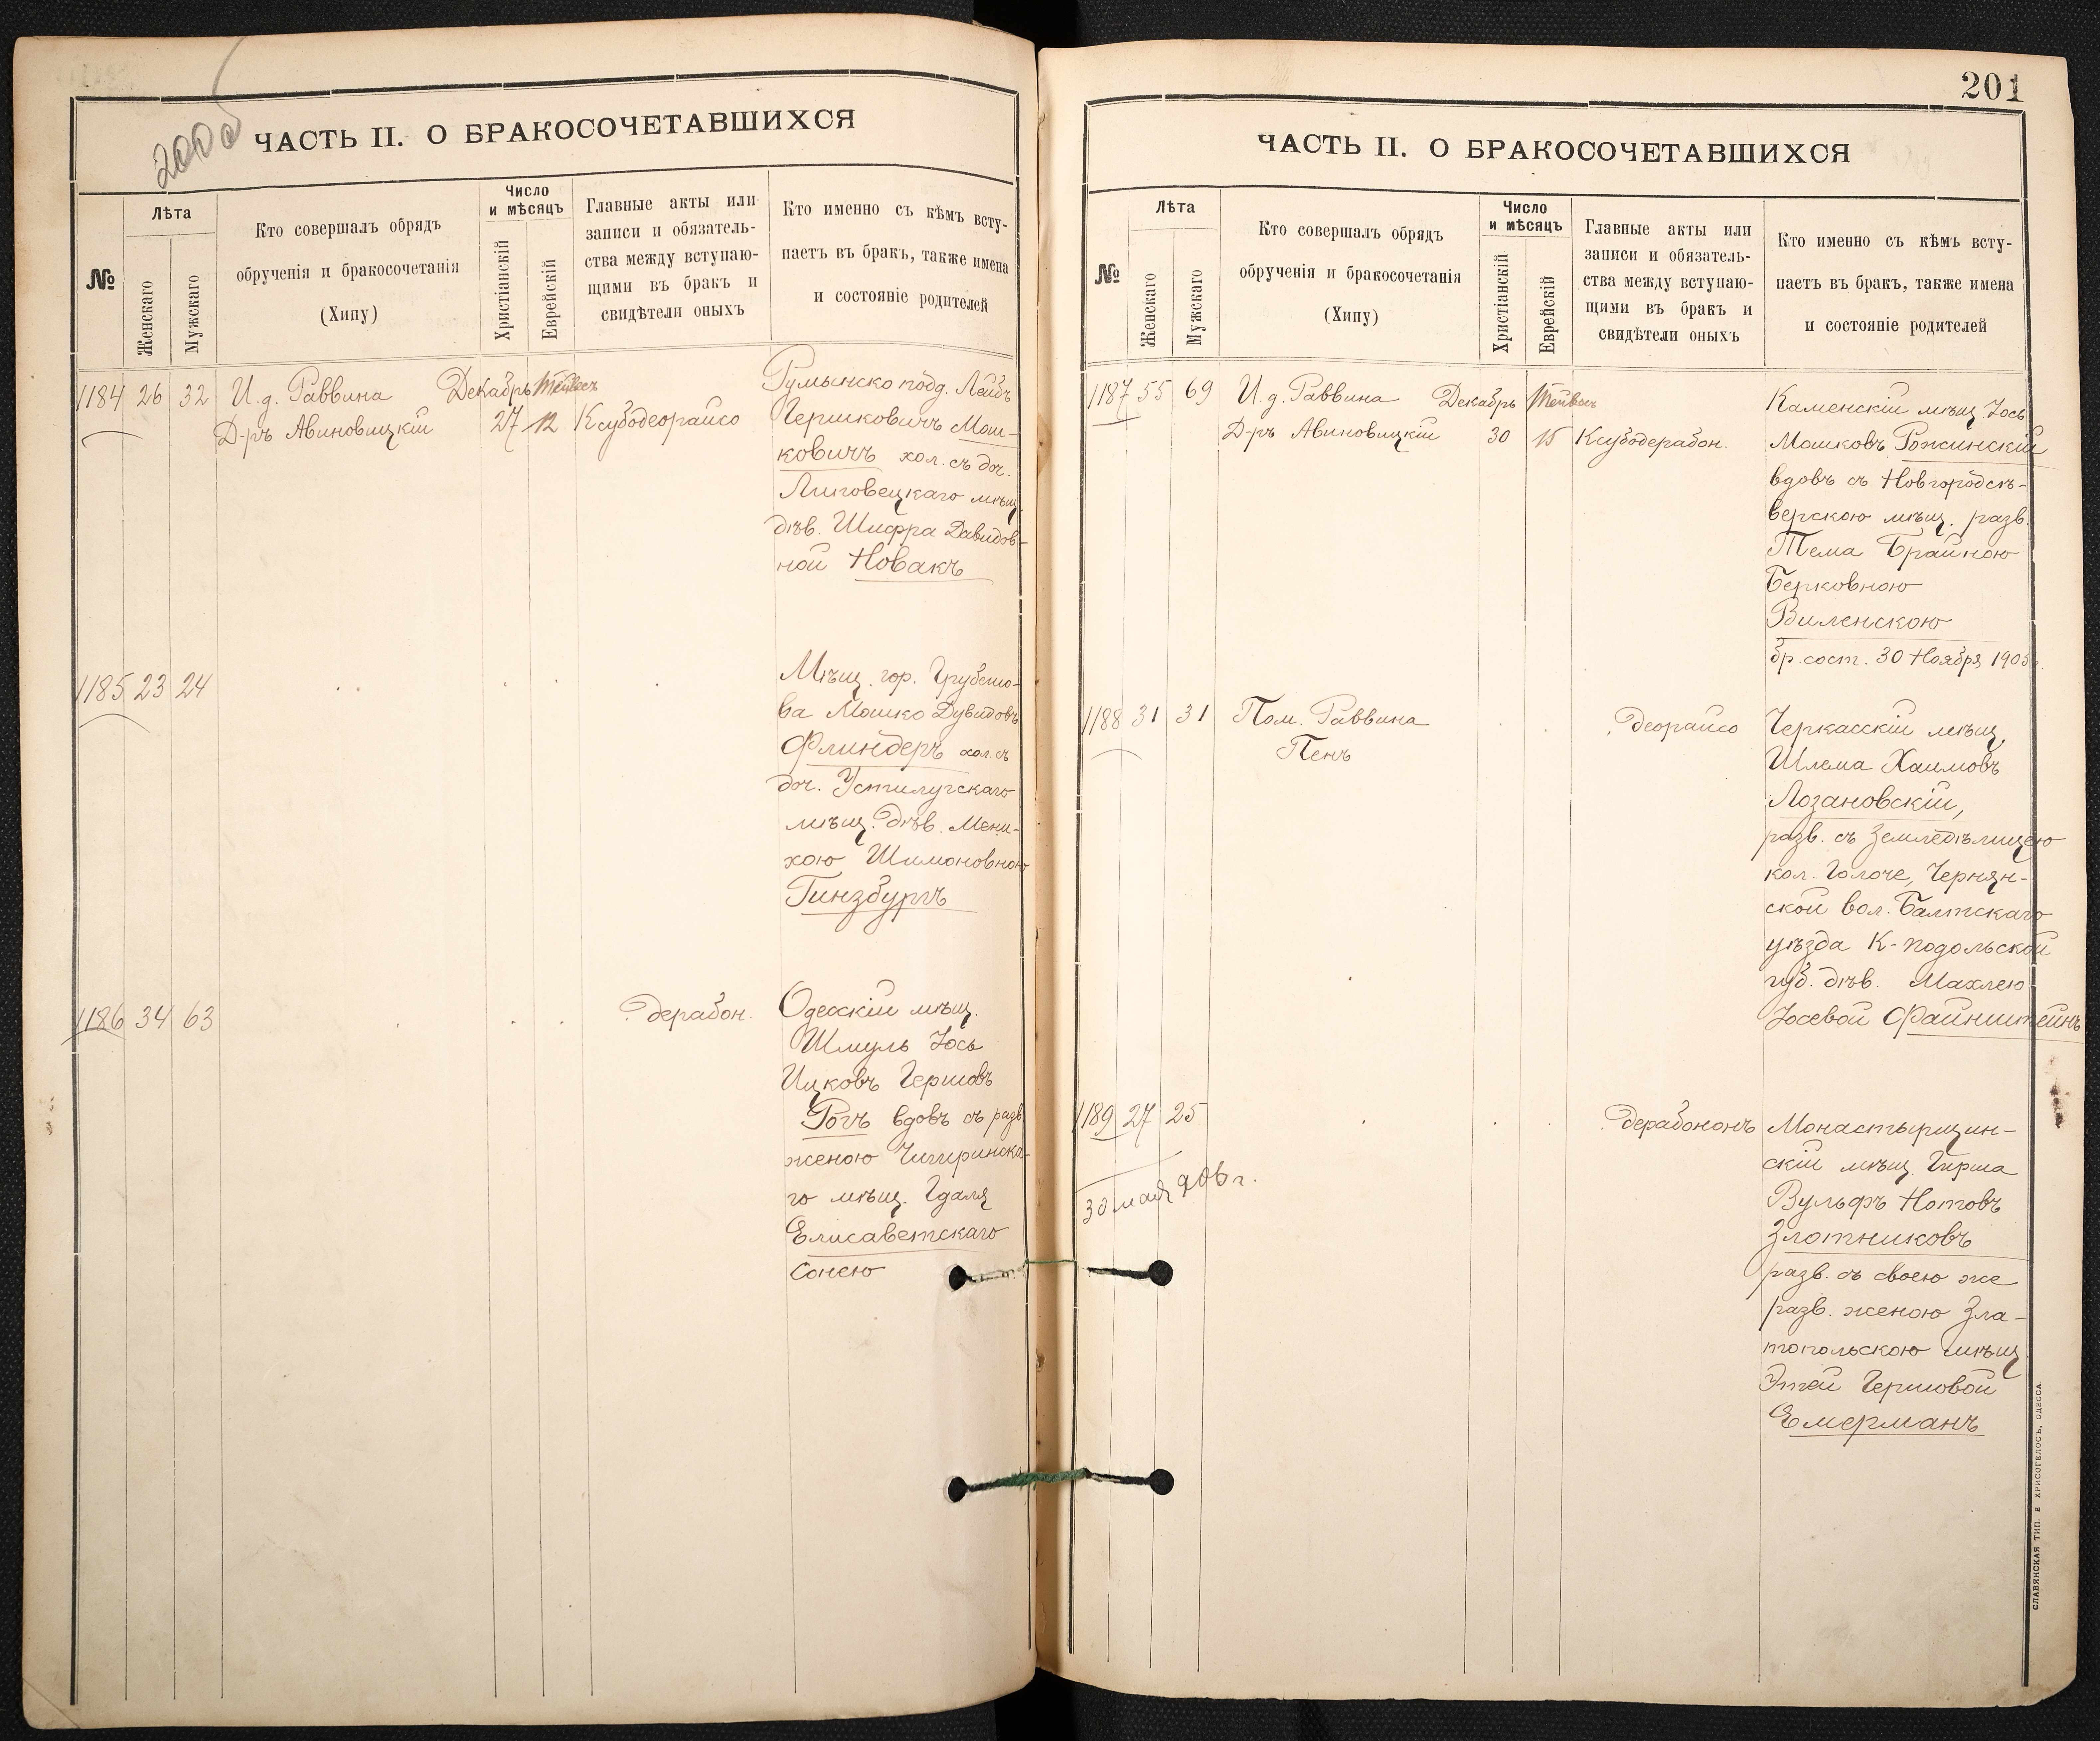 200 об
ЧАСТЬ II. О БРАКОСОЧЕТАВШИХСЯ
№
Лѣта
Женскаго
Мужскаго
Кто совершалъ обрядъ
обрученія и бракосочетанія
(Хипу)
Число
и мѣсяцъ
Христіанскій
Еврейскій
Главные акты или
записи и обязатель-
ства между вступаю-
щими въ бракъ и
свидѣтели оныхъ
Кто именно съ кѣмъ всту-
паетъ въ бракъ, также имена
и состояніе родителей
1184 26 32 И.д. Раввина Декабрь Тейвесъ
Д-ръ Авиновицкій 27 12 Ксубодеорайсо
Румынско подд. Лейбъ
Гершковичъ Мош-
ковичъ хол. съ доч.
Липовецкаго мѣщ.
дѣв. Шифра Давидов-
ной Новакъ
1185 23 24
Мѣщ. гор. Грубешо-
ва Мошко Дувидовъ
Флиндеръ хол. съ
доч. Устилугскаго
мѣщ. дѣв. Мени-
хою Шимоновною
Гинзбургъ
1186 34 63 дерабон.
Одесскій мѣщ.
Шмуль Іось
Ицковъ Гершовъ
Рогъ вдовъ съ разв.
женою Чигиринска-
го мѣщ. Гдаля
Елисаветскаго
Сонею
201
ЧАСТЬ II. О БРАКОСОЧЕТАВШИХСЯ
№
Лѣта
Женскаго
Мужскаго
Кто совершалъ обрядъ
обрученія и бракосочетанія
(Хипу)
Число
и мѣсяцъ
Христіанскій
Еврейскій
Главные акты или
записи и обязатель-
ства между вступаю-
щими въ бракъ и
свидѣтели оныхъ
Кто именно съ кѣмъ всту-
паетъ въ бракъ, также имена
и состояніе родителей
1187 55 69 И.д. Раввина Декабрь Тейвесъ
Д-ръ Авиновицкій 30 15 Ксубодерабон.
Каменскій мѣщ. Іось
Мошковъ Рожинскій
вдовъ съ Новгородсѣ-
верскою мѣщ. разв.
Тема Брайною
Берковною
Виленскою
бр. сост. 30 Ноября 1905 г.
1188 31 31 Пом. Раввина деорайсо
Пенъ
Черкасскій мѣщ.
Шлема Хаимовъ
Лозановскій,
разв. съ Земледѣлицею
кол. Голоче, Чернян-
ской вол. Балтскаго
уѣзда К-подольской
губ. дѣв. Махлею
Іосевой Файнштейнъ
1189 27 25 дерабононъ
30 мая 906 г.
Монастырщин-
скій мѣщ. Гирша
Вульфъ Нотовъ
Злотниковъ
разв. съ своею же
разв. женою Зла-
топольскою мѣщ.
Этей Гершовой
Емерманъ
СЛАВЯНСКАЯ ТИП. Е. ХРИСОГЕЛОСЪ, ОДЕССА.